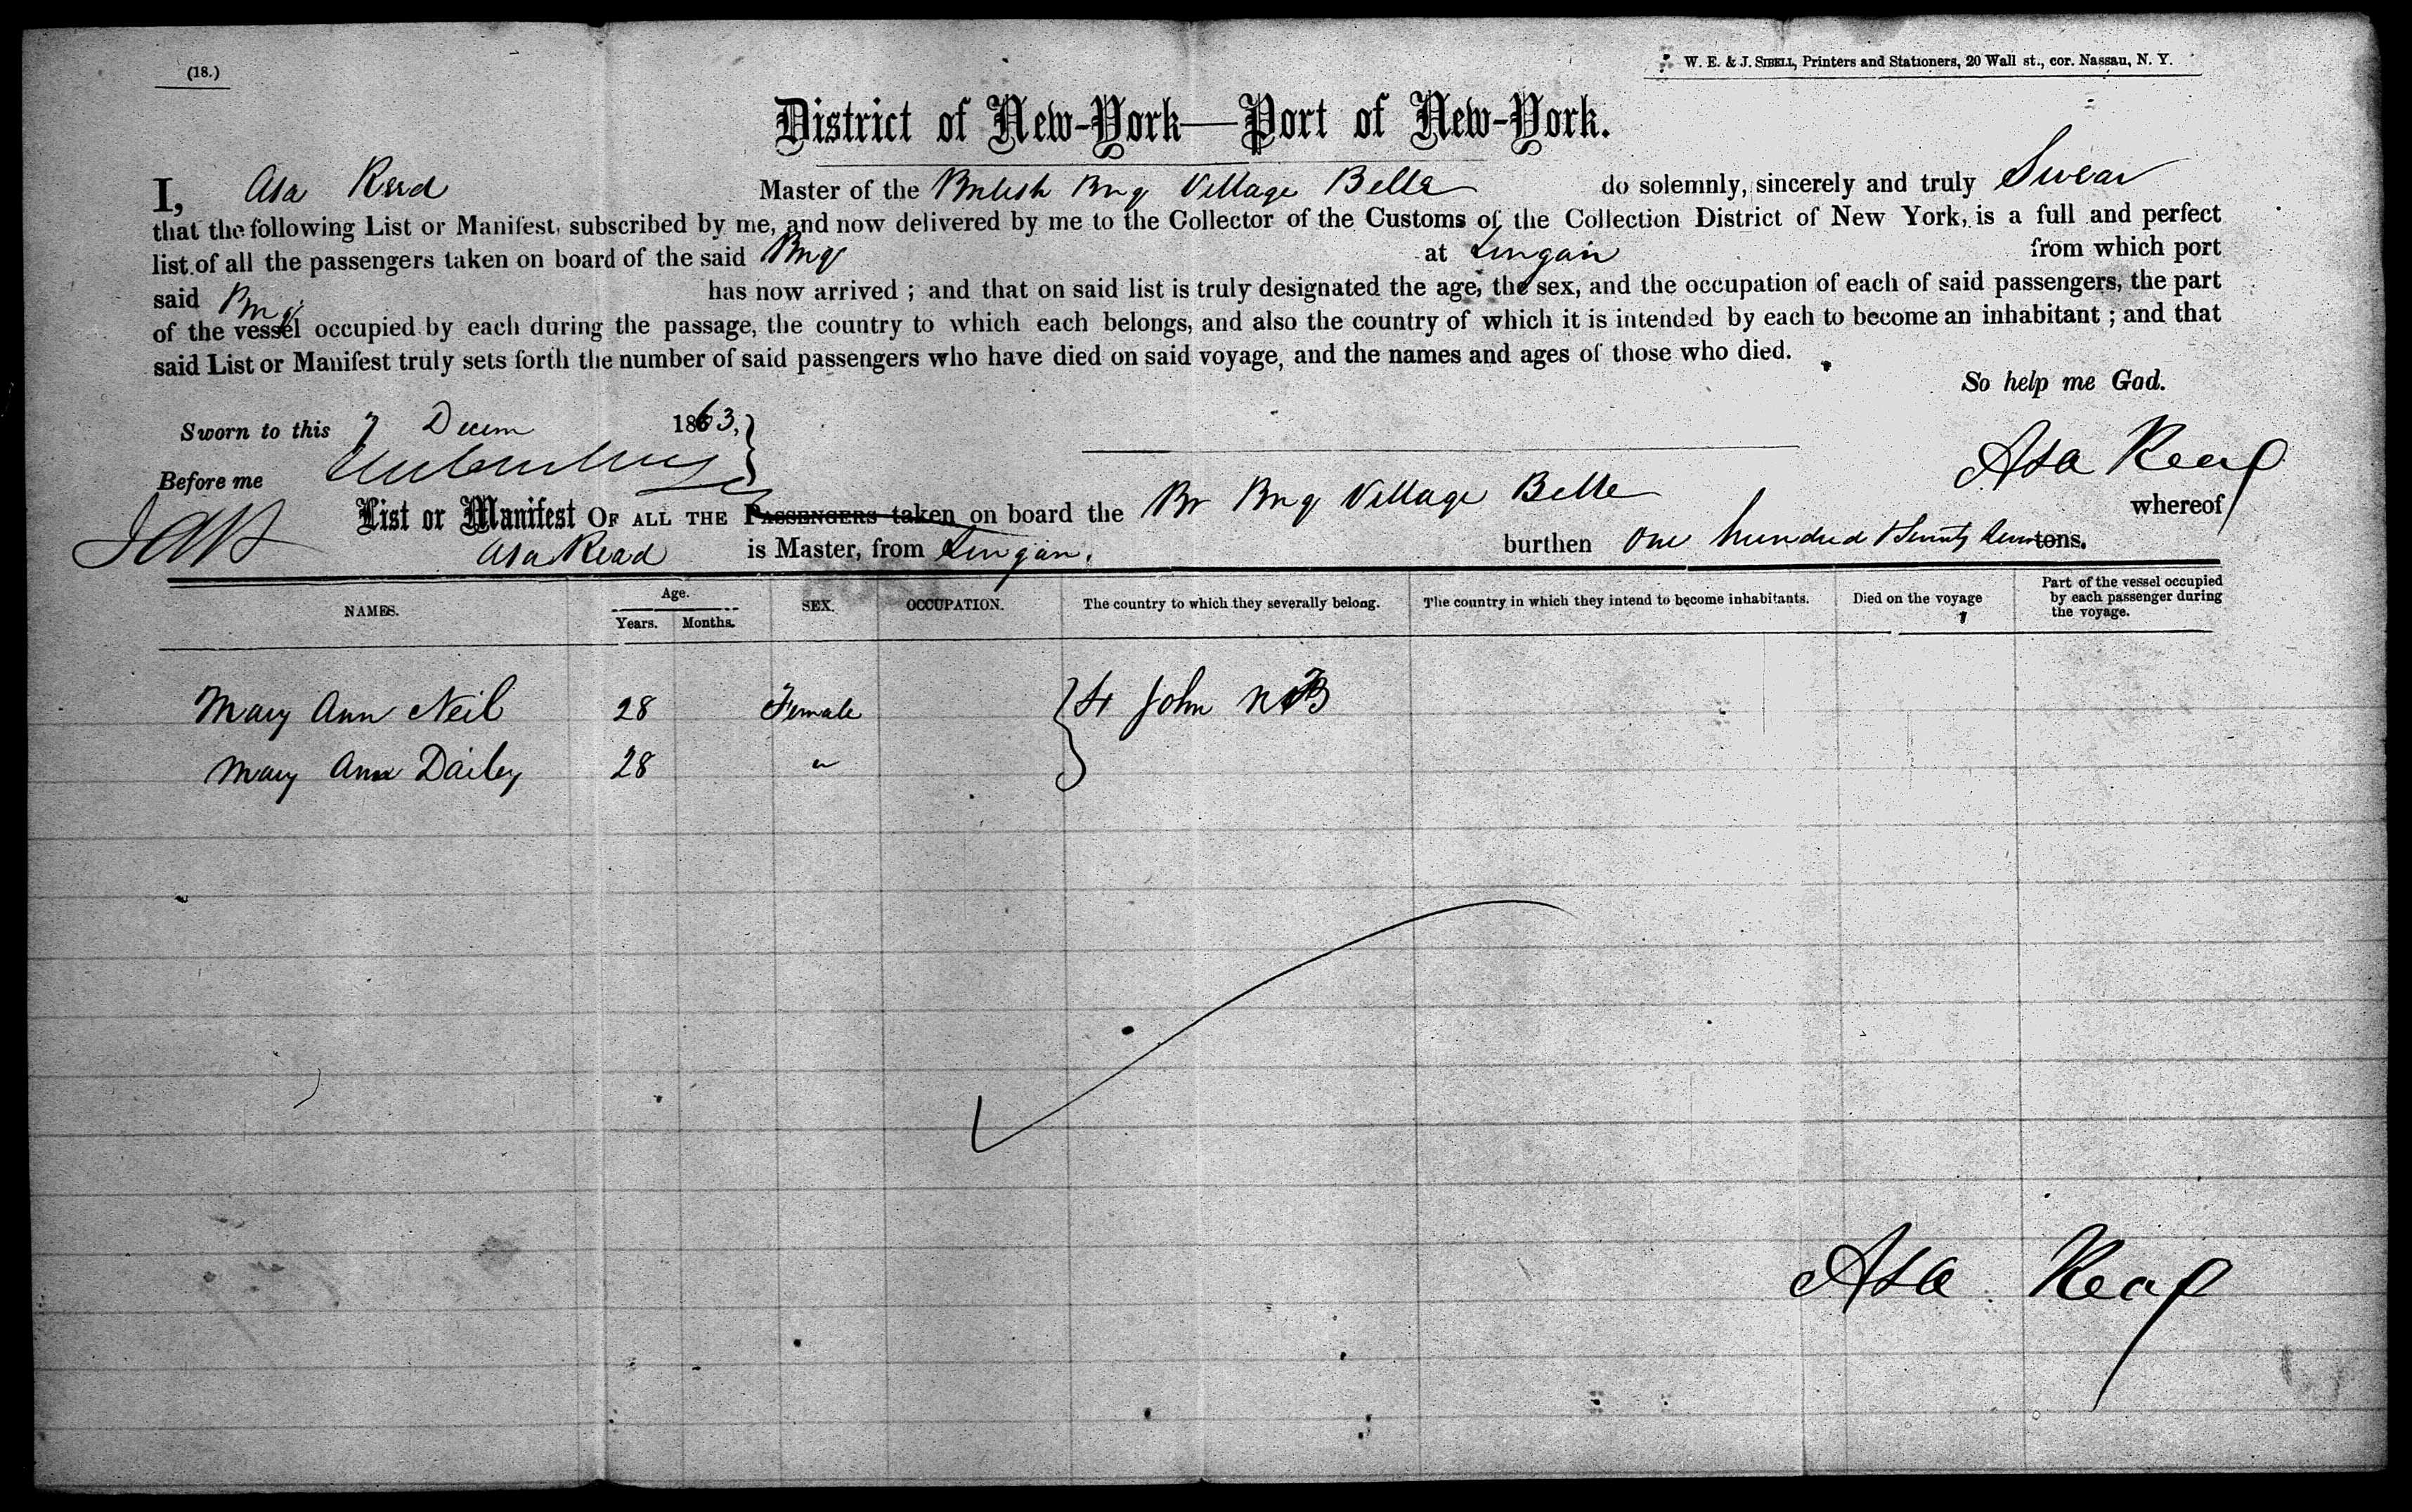 (18.)
W. E. & J. SIBELL, Printers and Stationers, 20 Wall st., cor. Nassau, N. Y.
District of New-York—Port of New-York.
I, Asa Read Master of the British Brig Village Belle do solemnly, sincerely and truly Swear
that the following List or Manifest, subscribed by me, and now delivered by me to the Collector of the Customs of the Collection District of New York, is a full and perfect
list of all the passengers taken on board of the said Brig at Lingan from which port
said Brig has now arrived ; and that on said list is truly designated the age, the sex, and the occupation of each of said passengers, the part
of the vessel occupied by each during the passage, the country to which each belongs, and also the country of which it is intended by each to become an inhabitant ; and that
said List or Manifest truly sets forth the number of said passengers who have died on said voyage, and the names and ages of those who died.
So help me God.
Sworn to this 7 Decem 1863,
Asa Read
Before me
List or Manifest OF ALL THE PASSENGERS taken on board the Br Brig Village Belle whereof
Asa Read is Master, from Lingan. burthen One hundred & Seventy tons.
NAMES. Age. Years. Months. SEX. OCCUPATION. The country to which they severally belong. The country in which they intend to become inhabitants. Died on the voyage Part of the vessel occupied by each passenger during the voyage.
Mary Ann Neil 28 Female St John NB
Mary Ann Dailey 28 "
Asa Read